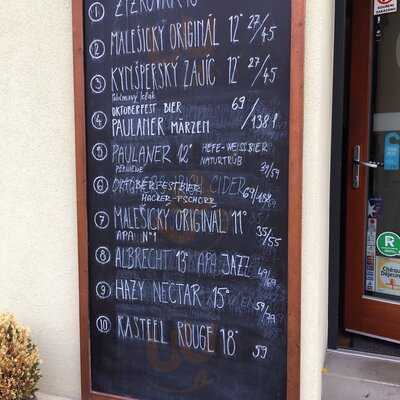 1 ŽIŽKOVAR 13°
2 MALEŠICKÝ ORIGINÁL 12° 27/45
3 KYNŠPERSKÝ ZAJÍC 12° 27/45
OKTOBERFEST BIER
4 PAULANER MÄRZEN 69/138,-
5 PAULANER 12° HEFE-WEISSBIER NATURTRÜB 39/59
6 OKTOBERFESTBIER CIDER 69/138
HACKER-PSCHORR
7 MALEŠICKÝ ORIGINÁL 11° 35/55
APA N°1
8 ALBRECHT 13° APA JAZZ 49/69
9 HAZY NECTAR 15° 59/79
10 KASTEEL ROUGE 18° 59
R
Chèque Déjeuner